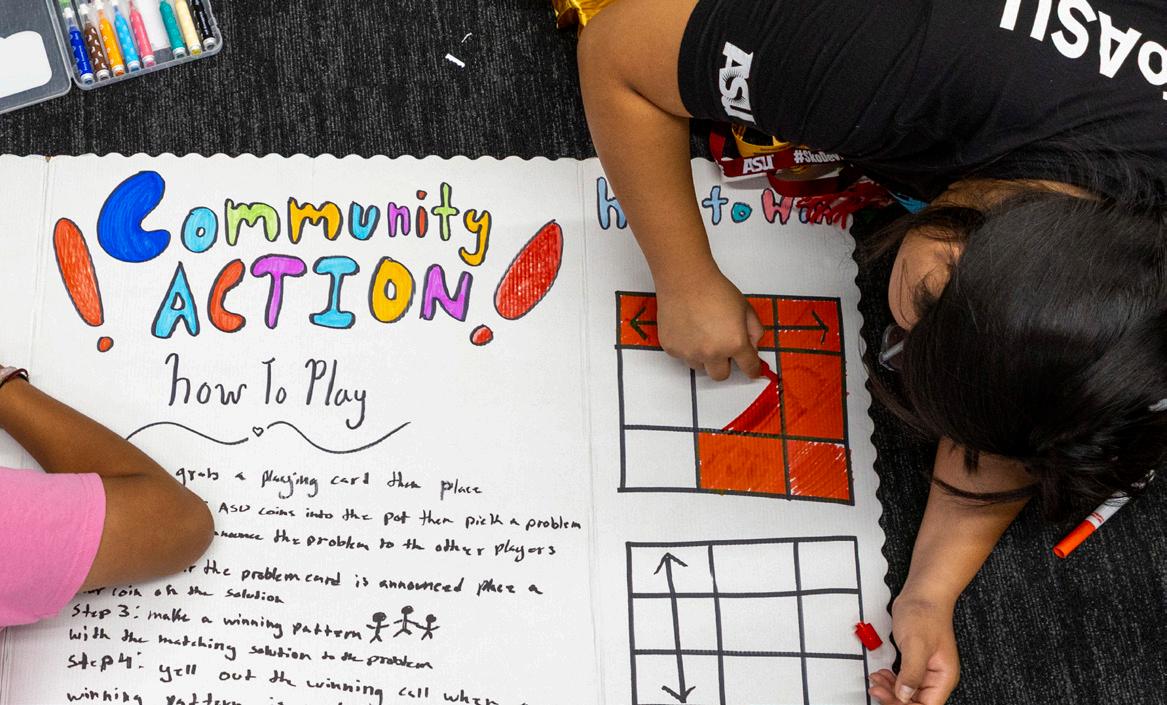 Community
ACTION
how To Play
grab a playing card then place
ASU coins into the pot then pick a problem
the problem to the other players
the problem card is announced place a
coin on the solution
Step 3: make a winning pattern
with the matching solution to the problem
Step 4: yell out the winning call when
winning
to
ASU
ASU
ASU